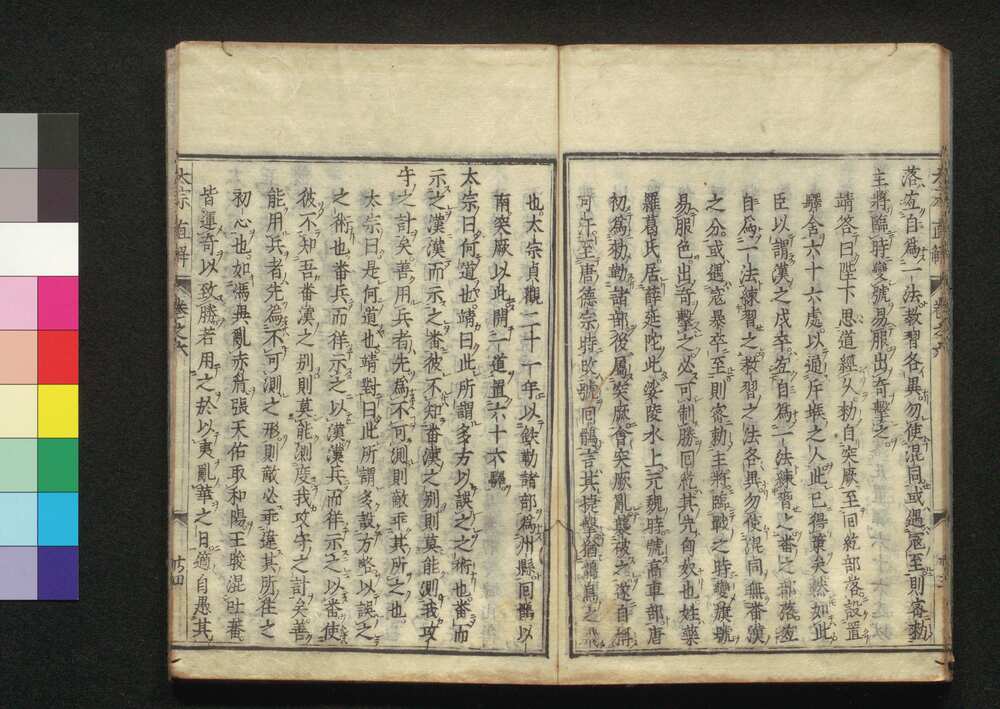 落宜自爲一法教習各異勿使混同或遇寇至則密勅
主將臨時變號易服出奇擊之
靖答曰陛下思道經久勅自突厥至回紇部落設置
驛舍六十六處以通斥堠之人此已得策矣然如此
臣以謂漢之戍卒宜自爲一法練習之番之部落宜
自爲一法練習之教習之法各異勿使混同無番漢
之分或遇寇暴卒至則密勅主將臨戰之時變旗號
易服色出奇擊之必可制勝回紇其先匈奴也姓藥
羅葛氏居薛延陀北娑陵水上元魏時號高車部唐
初爲勅勒諸部後屬突厥會突厥亂襲破之遂自稱
可汗至唐德宗時改號回鶻言其捷擊猶鶻鳥之飛
也太宗貞觀二十一年以鉄勒諸部爲州縣回鶻以
南突厥以北開一道置六十六驛
太宗曰何道也靖曰此所謂多方以誤之之術也番而
示之漢漢而示之番彼不知番漢之別則莫能測我攻
守之計矣善用兵者先爲不可測則敵乖其所之也
太宗曰是何道也靖對曰此所謂多設方略以誤之
之術也番兵而佯示之以漢漢兵而佯示之以番使
彼不知吾番漢之別則莫能測度我攻守之計矣善
能用兵者先爲不可測之形則敵必乖違其所往之
初心也如馮異亂赤眉張天佑取和陽王駿混吐蕃
皆運奇以致勝若用之於以夷亂華之日適自愚其
太宗直解
卷之六
廿四